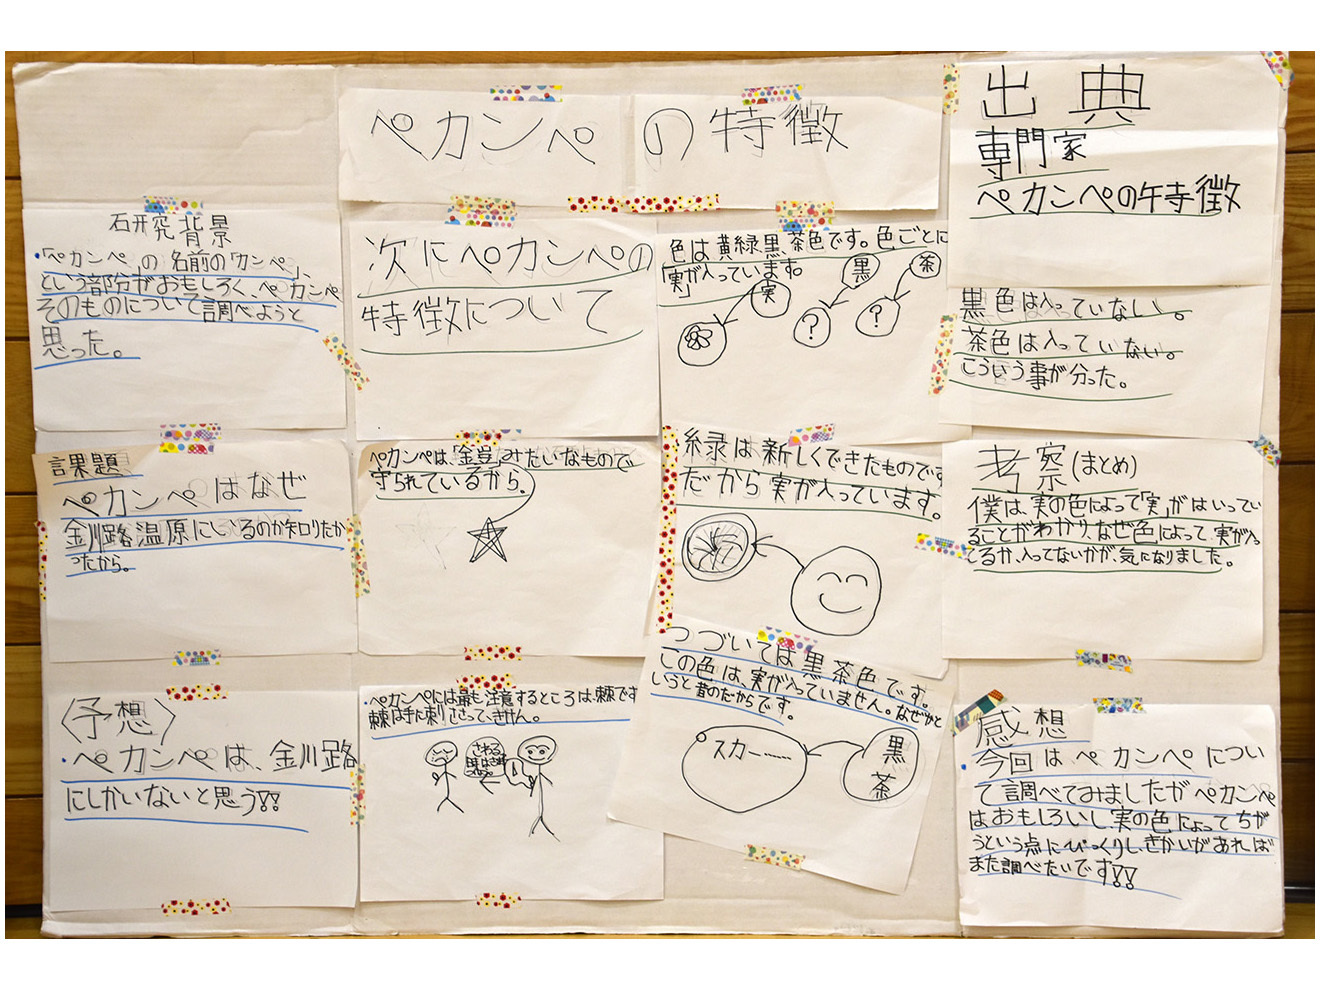 ペカンペの特徴
研究背景
・「ペカンペ」の名前の「カンペ」
という部分がおもしろく、ペカンペ
そのものについて調べようと
思った。
課題
ペカンペはなぜ
釧路湿原にいるのか知りたか
ったから。
〈予想〉
・ペカンペは、釧路
にしかいないと思う!!
次にペカンペの
特徴について
ペカンペは、「金壹」みたいなもので
守られているから。
・ペカンペには最も注意するところは、棘です
棘は手に刺さって、きせん。
色は黄緑、黒、茶色です。色ごとに
「実」が入っています。
実
黒
茶
?
?
緑は新しくできたものです
だから実が入っています。
つづいては黒茶色です。
この色は、実が入っていません。なぜかと
いうと昔のだからです。
スカー……
黒
茶
出典
専門家
ペカンペの特徴
黒色は入っていない。
茶色は入っていない。
こういう事が分った。
考察(まとめ)
僕は、実の色によって「実」がはいってい
ることがわかり、なぜ色によって、実が入っ
てるか、入ってないかが、気になりました。
感想
・今回はペカンペについ
て調べてみましたがペカンペ
はおもしろいし、実の色によってちが
うという点にびっくりし、きかいがあれば
また調べたいです!!